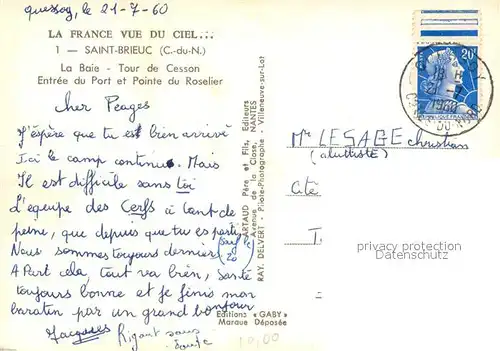 quessoy, le 21-7-60
LA FRANCE VUE DU CIEL...
1 — SAINT-BRIEUC (C.-du-N.)
La Baie - Tour de Cesson
Entrée du Port et Pointe du Roselier
Cher Peages
J'éspère que tu est bien arrivé
Ici le camp continue. Mais
Il est difficile sans toi
L'equipe des Cerfs a tant de
peine, que depuis que tu es parti
Nous sommes toujours dernier.
A Part cela, tout va bien, Santé
toujours bonne et je finis mon
baratin par un grand bonjour
Jacques
Editions « GABY »
Marque Déposée
ARTAUD Père et Fils, Editeurs
Avenue de la Close, NANTES
RAY. DELVERT Pilote-Photographe Villeneuve-sur-Lot
20F
1960
DU NORD
Mr LESAGE Christian
Cité
T.
privacy protection
Datenschutz
10,00